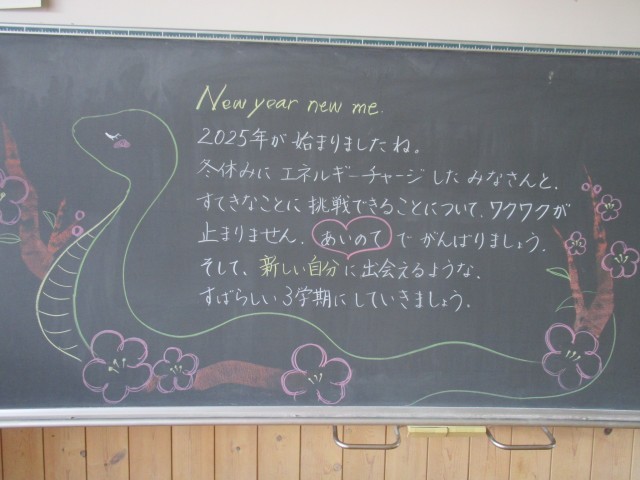 New year new me.
2025年が始まりましたね。
冬休みにエネルギーチャージしたみなさんと、
すてきなことに挑戦できることについて、ワクワクが
止まりません。あいのてでがんばりましょう。
そして、新しい自分に出会えるような、
すばらしい3学期にしていきましょう。